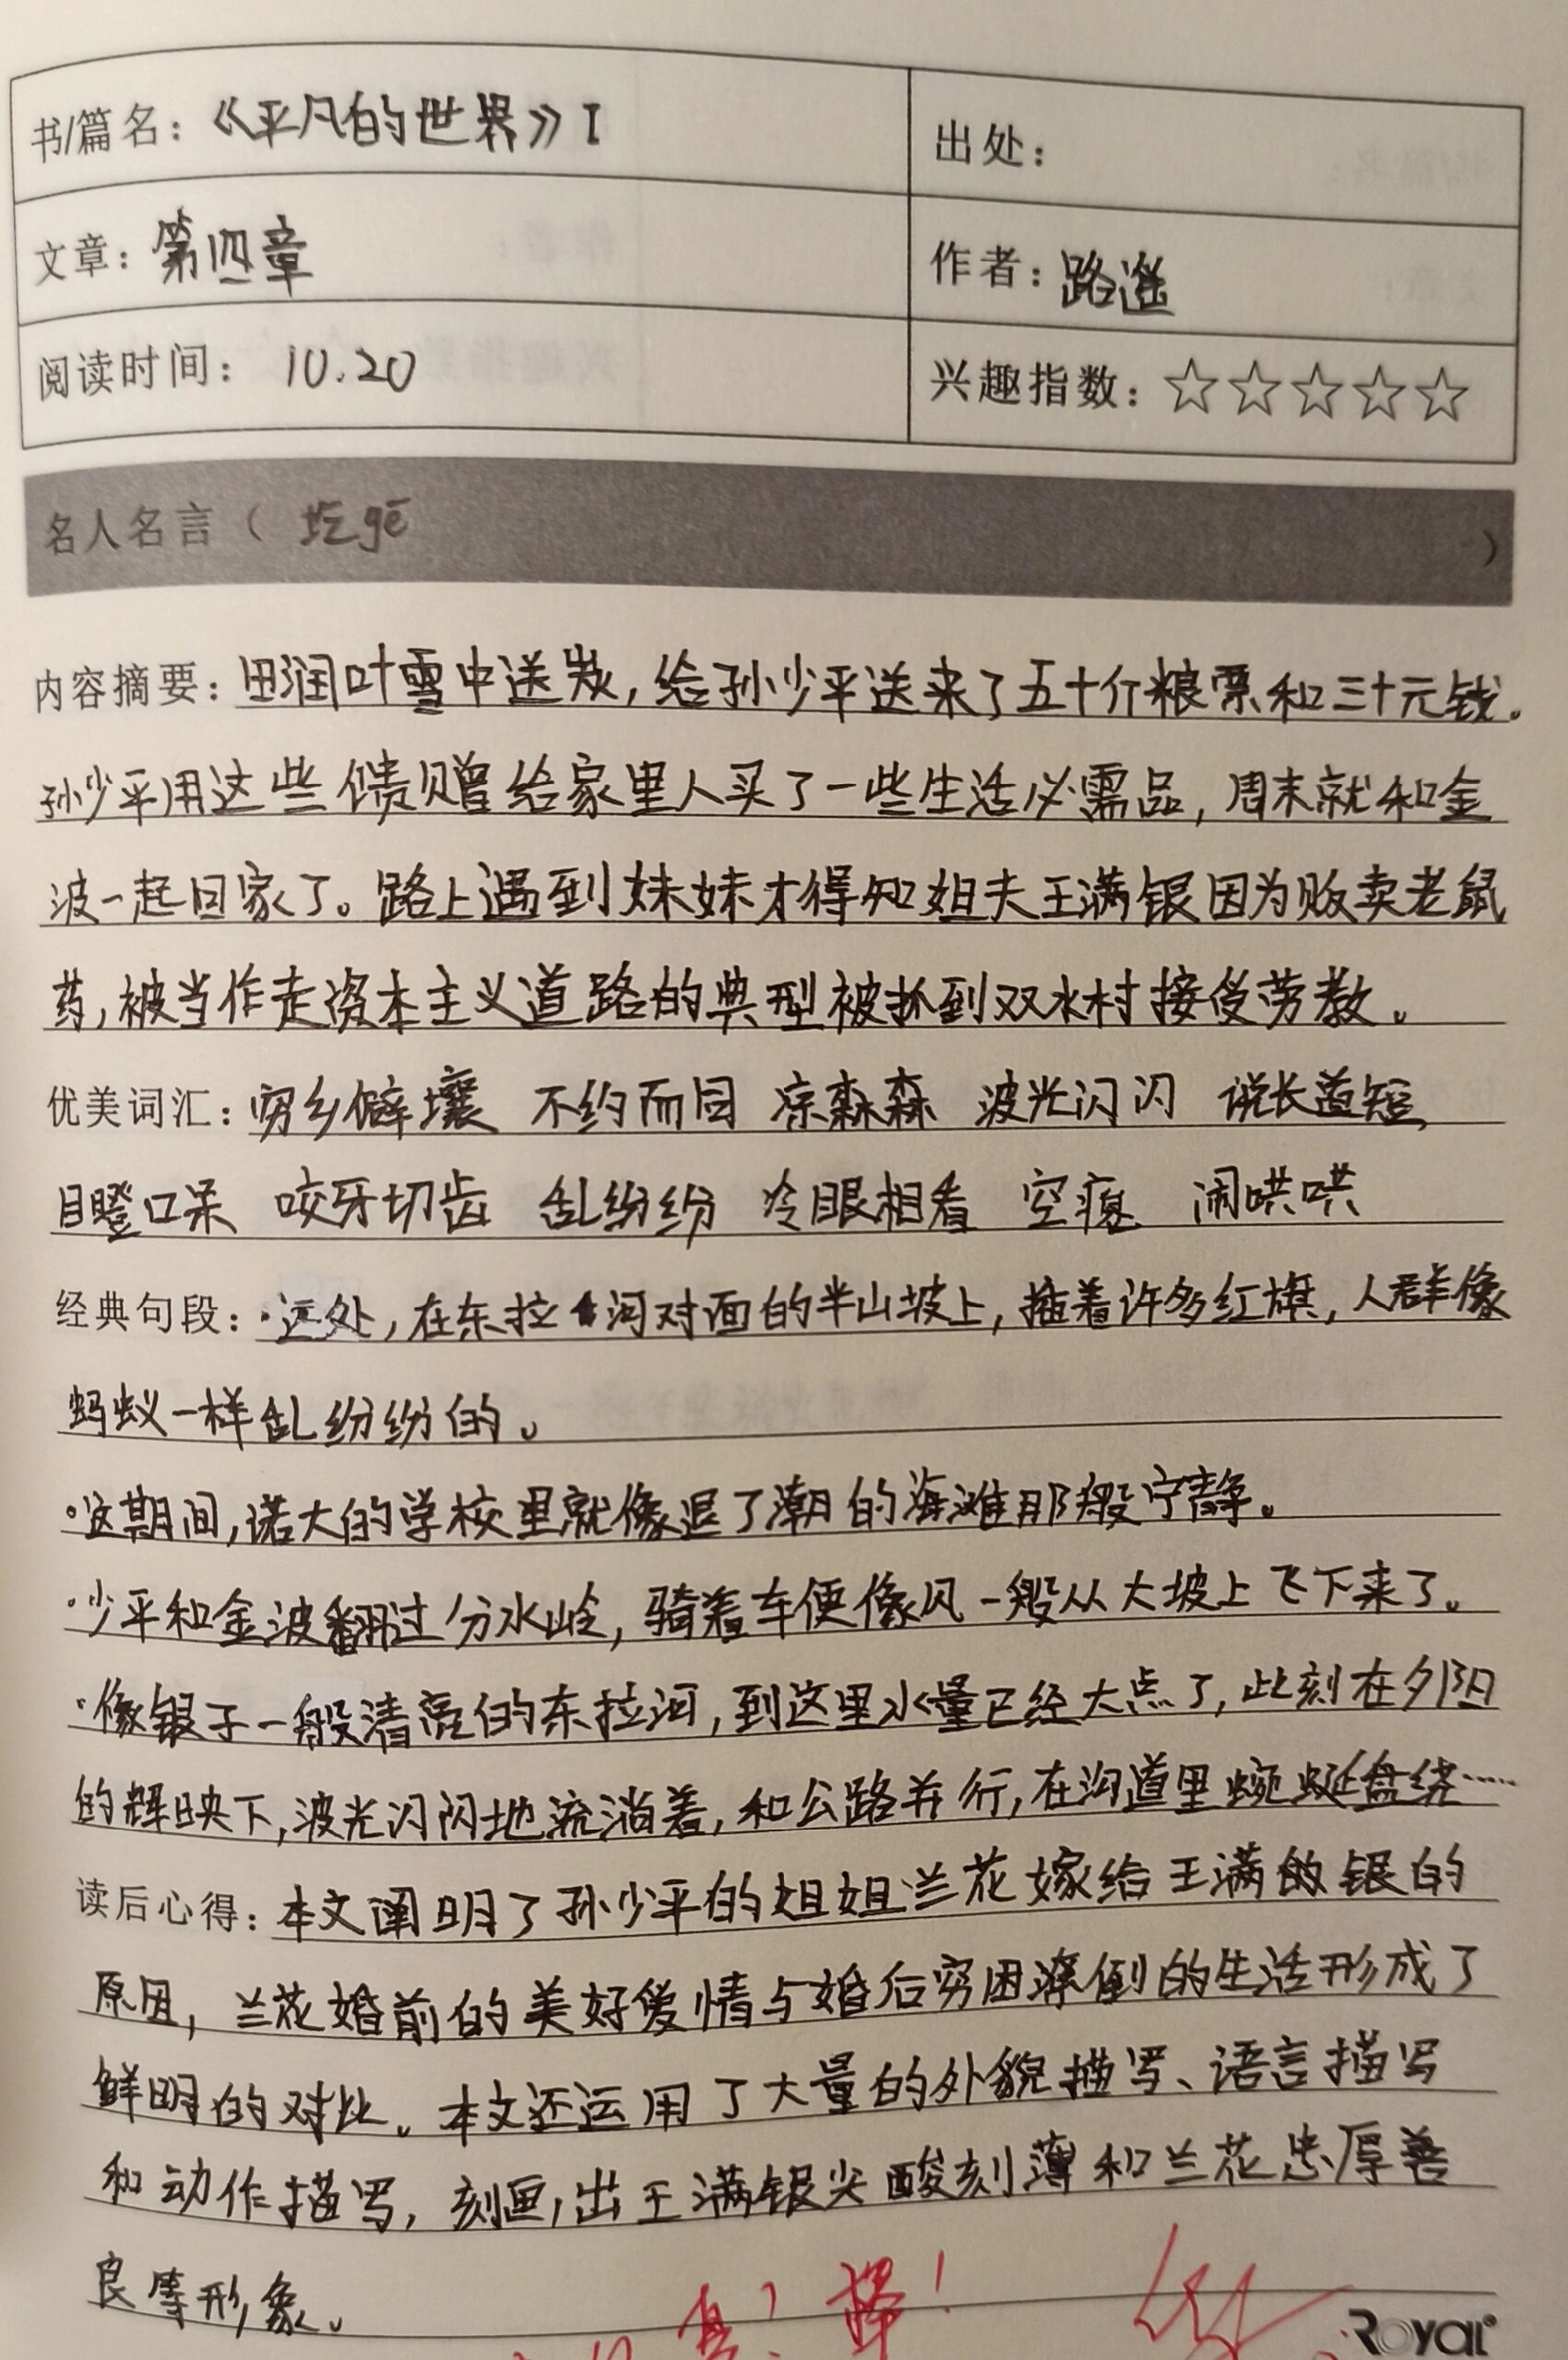 书/篇名：《平凡的世界》I
出处：
文章：第四章
作者：路遥
阅读时间：10.20
兴趣指数：☆☆☆☆☆
名人名言（ 圪gē ）
内容摘要：田润叶雪中送炭，给孙少平送来了五十斤粮票和三十元钱。
孙少平用这些馈赠给家里人买了一些生活必需品，周末就和金
波一起回家了。路上遇到妹妹才得知姐夫王满银因为贩卖老鼠
药，被当作走资本主义道路的典型被抓到双水村接受劳教。
优美词汇：穷乡僻壤 不约而同 凉森森 波光闪闪 说长道短
目瞪口呆 咬牙切齿 乱纷纷 冷眼相看 空窑 闹哄哄
经典句段：·远处，在东拉河对面的半山坡上，插着许多红旗，人群像
蚂蚁一样乱纷纷的。
·这期间，诺大的学校里就像退了潮的海滩那般宁静。
·少平和金波翻过分水岭，骑着车便像风一般从大坡上飞下来了。
·像银子一般清亮的东拉河，到这里水量已经大点了，此刻在夕阳
的辉映下，波光闪闪地流淌着，和公路并行，在沟道里蜿蜒盘绕……
读后心得：本文阐明了孙少平的姐姐兰花嫁给王满银的
原因，兰花婚前的美好爱情与婚后穷困潦倒的生活形成了
鲜明的对比。本文还运用了大量的外貌描写、语言描写
和动作描写，刻画出王满银尖酸刻薄和兰花忠厚善
良等形象。
Royal